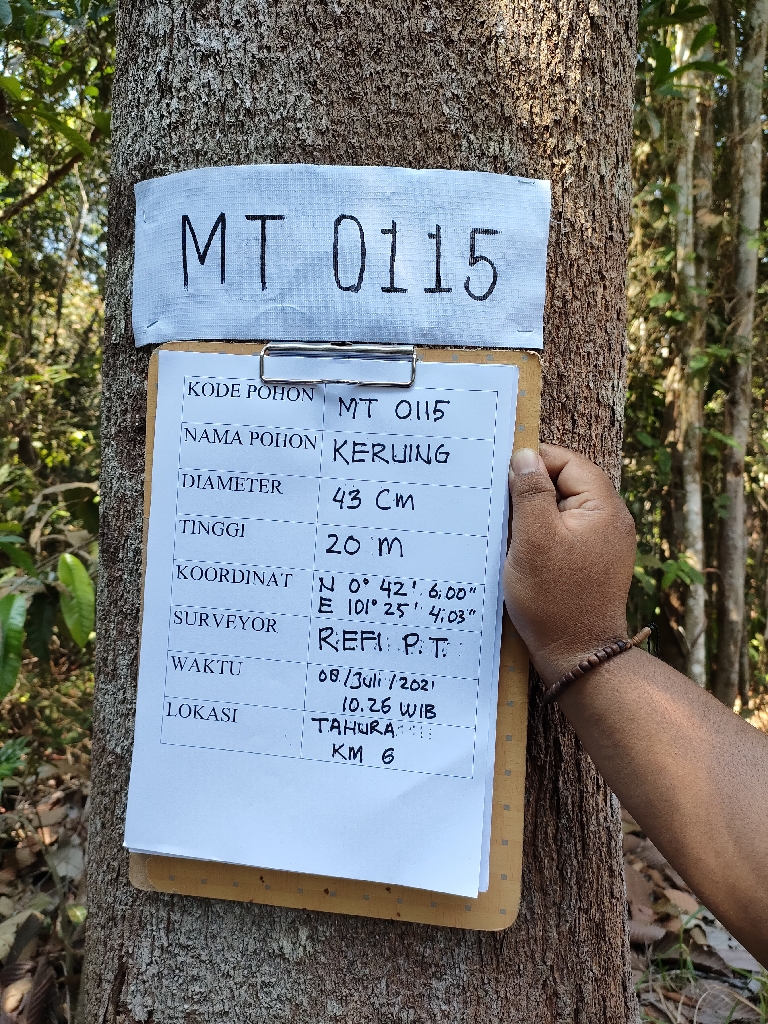 MT 0115
KODE POHON MT 0115
NAMA POHON KERUING
DIAMETER 43 Cm
TINGGI 20 m
KOORDINAT N 0° 42' 6,00"
E 101° 25' 4,03"
SURVEYOR REFI P.T.
WAKTU 08/Juli/2021
10.26 WIB
LOKASI TAHURA
KM 6